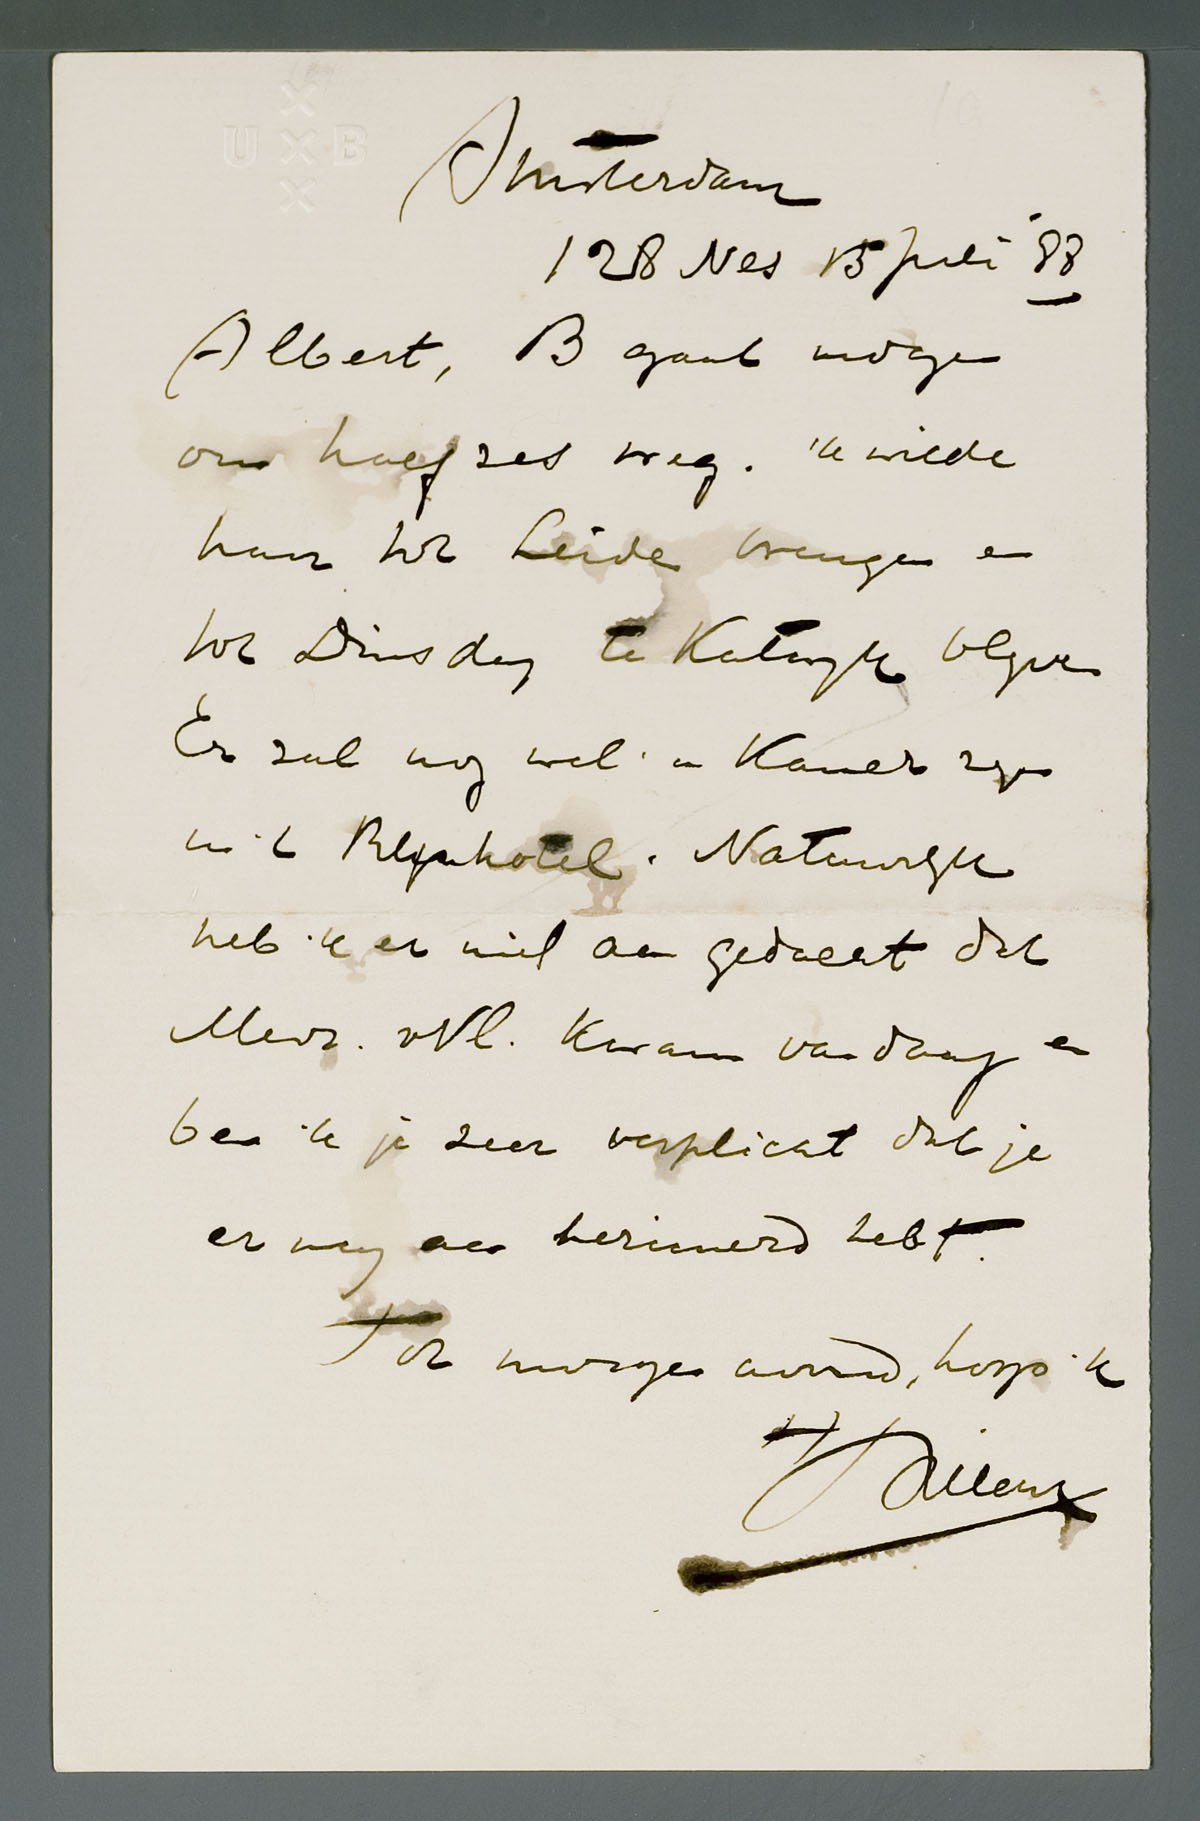 U B
Amsterdam
128 Nes 15 Juli '88
Albert, B gaat morgen
om half zes weg. 'k wilde
haar tot Leiden brengen en
tot Dinsdag te Katwyk blyven
Er zal nog wel 'n Kamer zyn
in 't Rijnhotel. Natuurlyk
heb 'k er niet aan gedacht dat
Mevr. vVl. kwam vandaag en
ben 'k je zeer verplicht dat je
er my aan herinnerd hebt.
Tot morgen avond, hoop 'k
Willem